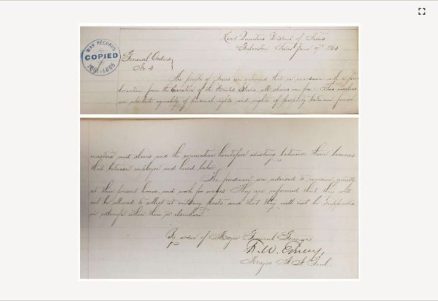 WAR RECORDS
COPIED
1861-1865
Head Quarters District of Texas
Galveston Texas June 19th 1865
General Orders
No. 3
The people of Texas are informed that in accordance with a
from the Executive of the United States all slaves are free. This involves
an absolute equality of personal rights and rights of property between former
masters and slaves and the connection heretofore existing between them becomes
that between employer and hired labor.
The freedmen are advised to remain quietly
at their present homes and work for wages. They are informed that they will
not be allowed to collect at military posts and that they will not be supported
in idleness either there or elsewhere.
By order of Major General Granger
F.W. Emery
Major A.A. Genl.